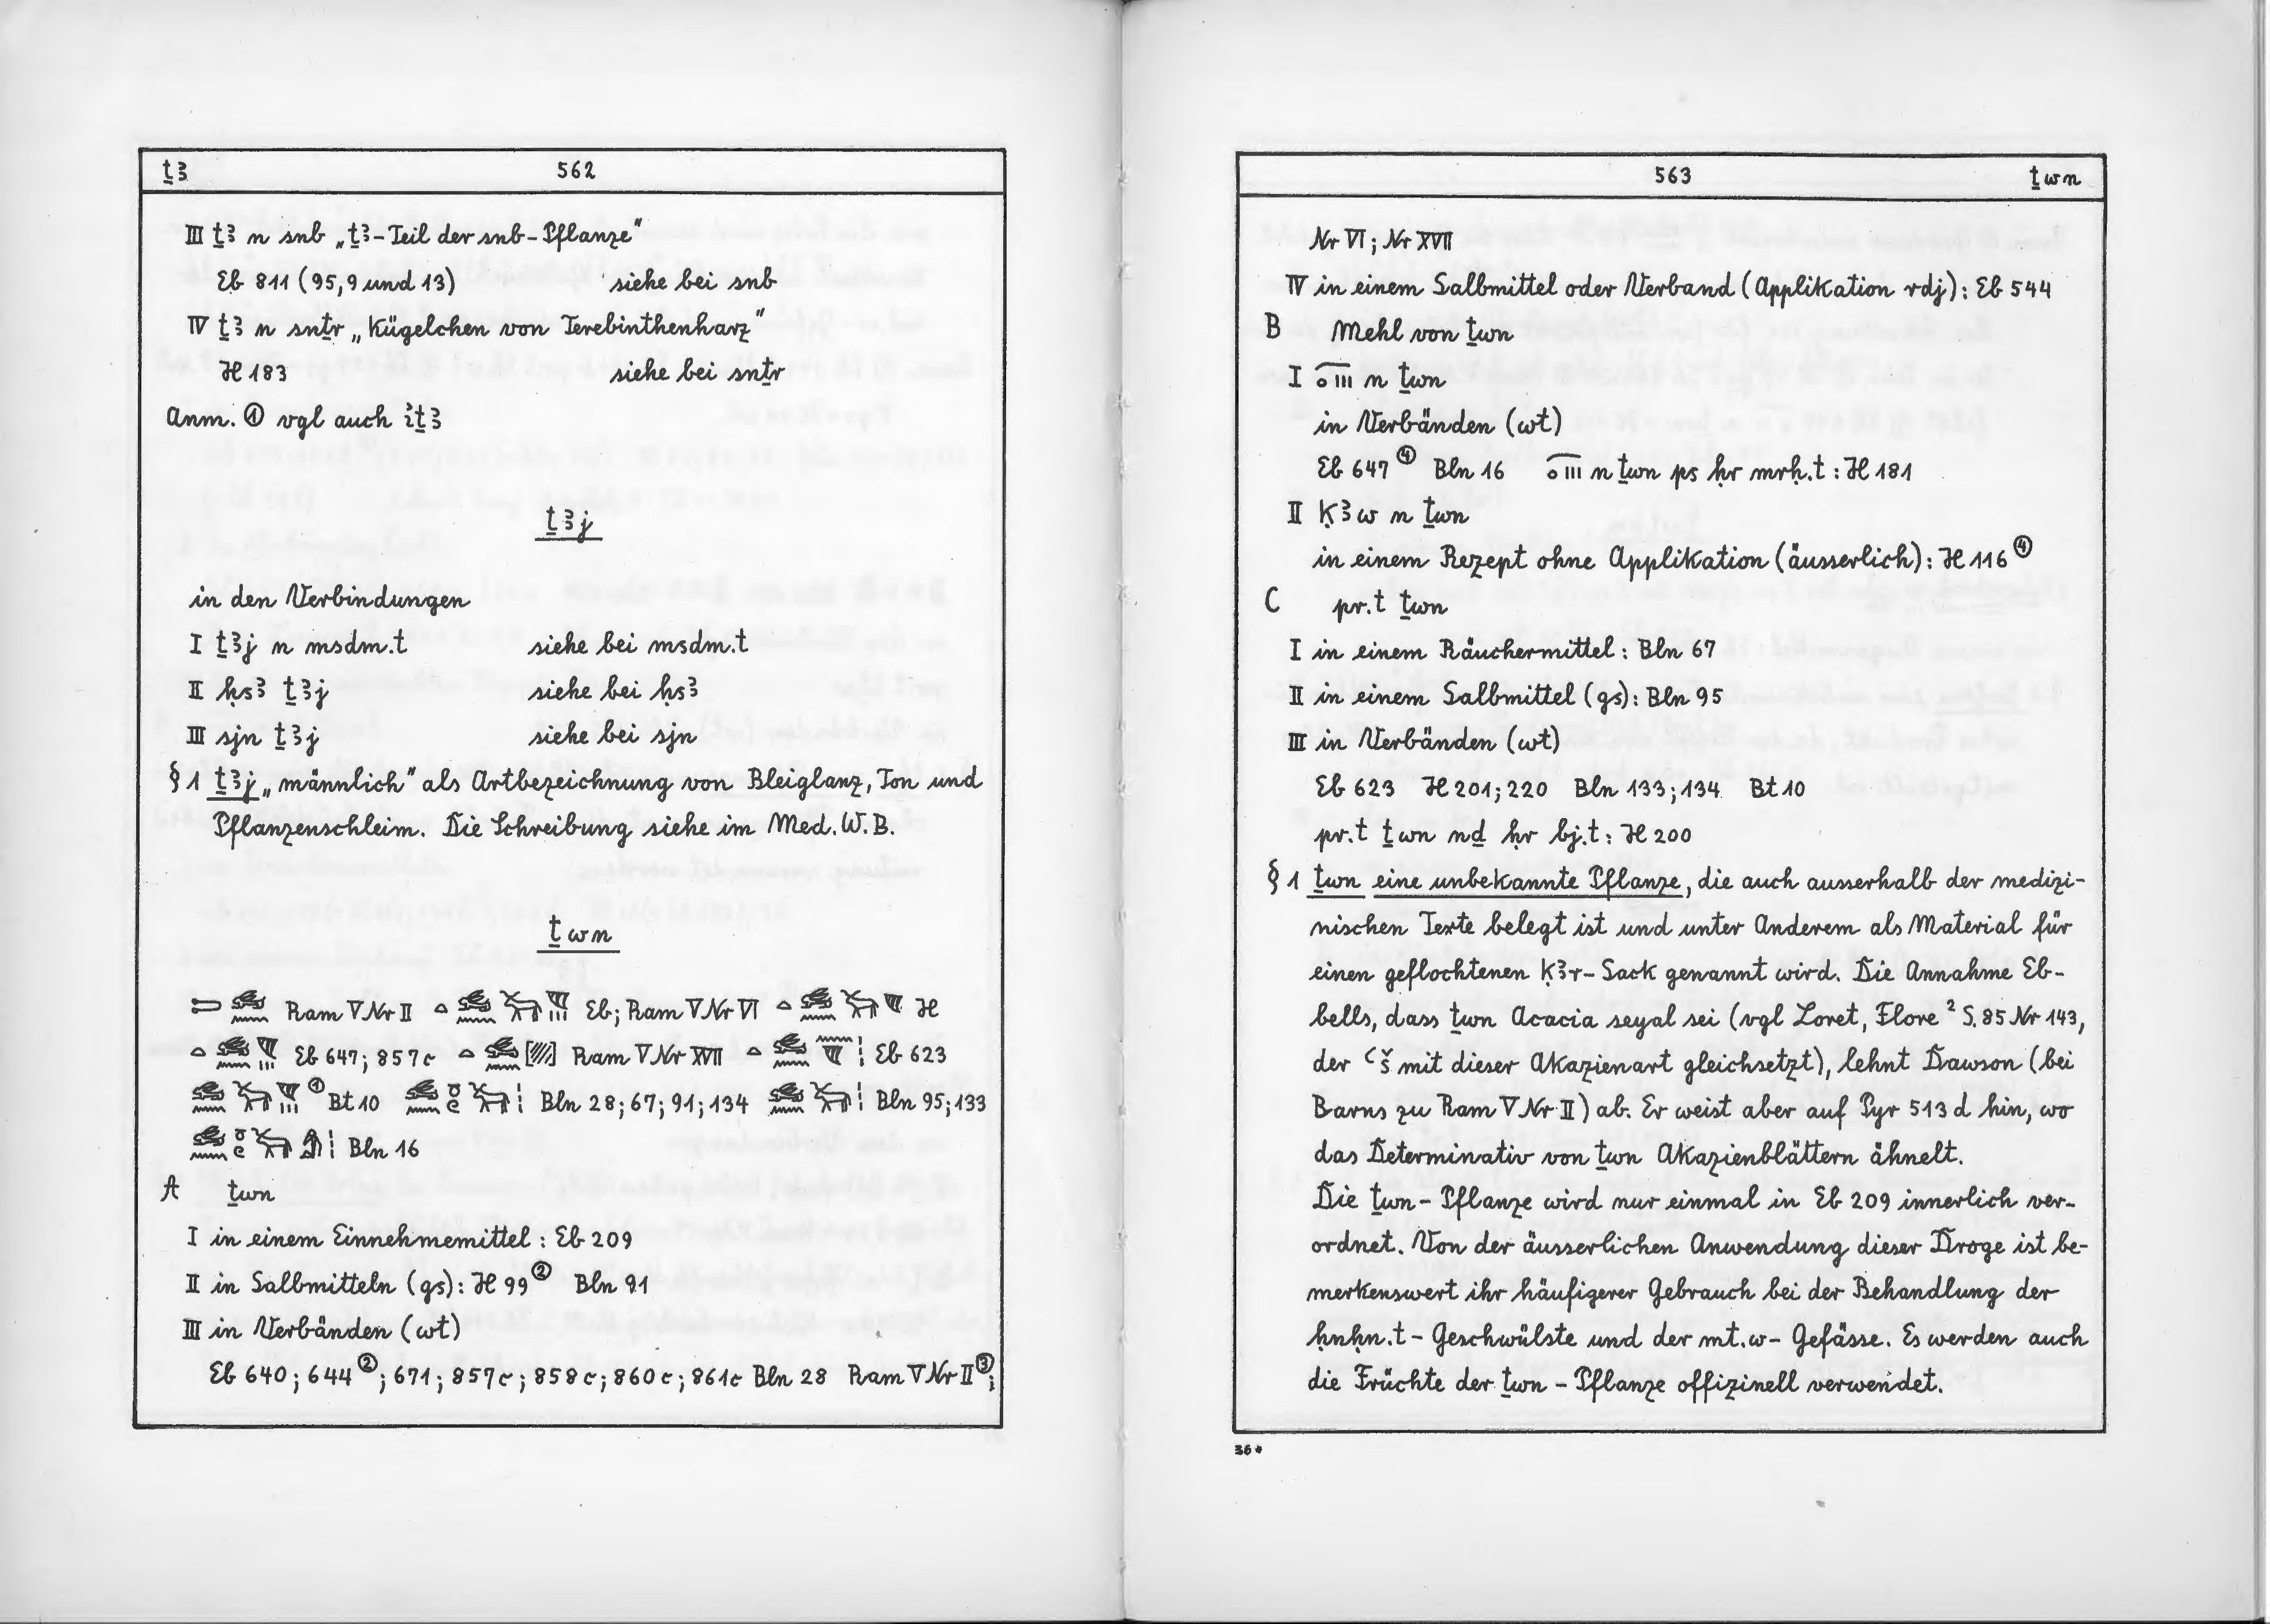 ṯꜣ 562
III ṯꜣ n snb „ṯꜣ-Teil der snb-Pflanze"
Eb 811 (95,9 und 13) siehe bei snb
IV ṯꜣ n snṯr „Kügelchen von Terebinthenharz"
H 183 siehe bei snṯr
Anm. ① vgl auch ꞽṯꜣ
ṯꜣj
in den Verbindungen
I ṯꜣj n msdm.t siehe bei msdm.t
II ḥsꜣ ṯꜣj siehe bei ḥsꜣ
III sjn ṯꜣj siehe bei sjn
§ 1 ṯꜣj „männlich" als Artbezeichnung von Bleiglanz, Ton und
Pflanzenschleim. Die Schreibung siehe im Med. W.B.
ṯwn
Ram V Nr II Eb; Ram V Nr VI H
Eb 647; 857c Ram V Nr XVII Eb 623
① Bt 10 Bln 28; 67; 91; 134 Bln 95; 133
Bln 16
A ṯwn
I in einem Einnehmemittel: Eb 209
II in Salbmitteln (gs): H 99② Bln 91
III in Verbänden (wt)
Eb 640; 644②; 671; 857c; 858c; 860c; 861c Bln 28 Ram V Nr II③;
563 ṯwn
Nr VI; Nr XVII
IV in einem Salbmittel oder Verband (Applikation rdj): Eb 544
B Mehl von ṯwn
I n ṯwn
in Verbänden (wt)
Eb 647④ Bln 16 n ṯwn ps ḥr mrḥ.t: H 181
II ḳꜣw n ṯwn
in einem Rezept ohne Applikation (äusserlich): H 116④
C pr.t ṯwn
I in einem Räuchermittel: Bln 67
II in einem Salbmittel (gs): Bln 95
III in Verbänden (wt)
Eb 623 H 201; 220 Bln 133; 134 Bt 10
pr.t ṯwn nḏ ḥr bj.t: H 200
§ 1 ṯwn eine unbekannte Pflanze, die auch ausserhalb der medizi-
nischen Texte belegt ist und unter Anderem als Material für
einen geflochtenen ḳꜣr-Sack genannt wird. Die Annahme Eb-
bells, dass ṯwn Acacia seyal sei (vgl Loret, Flore² S. 85 Nr 143,
der ꜥš mit dieser Akazienart gleichsetzt), lehnt Dawson (bei
Barns zu Ram V Nr II) ab. Er weist aber auf Pyr 513 d hin, wo
das Determinativ von ṯwn Akazienblättern ähnelt.
Die ṯwn-Pflanze wird nur einmal in Eb 209 innerlich ver-
ordnet. Von der äusserlichen Anwendung dieser Droge ist be-
merkenswert ihr häufigerer Gebrauch bei der Behandlung der
ḥnḥn.t-Geschwülste und der mt.w-Gefässe. Es werden auch
die Früchte der ṯwn-Pflanze offizinell verwendet.
36*